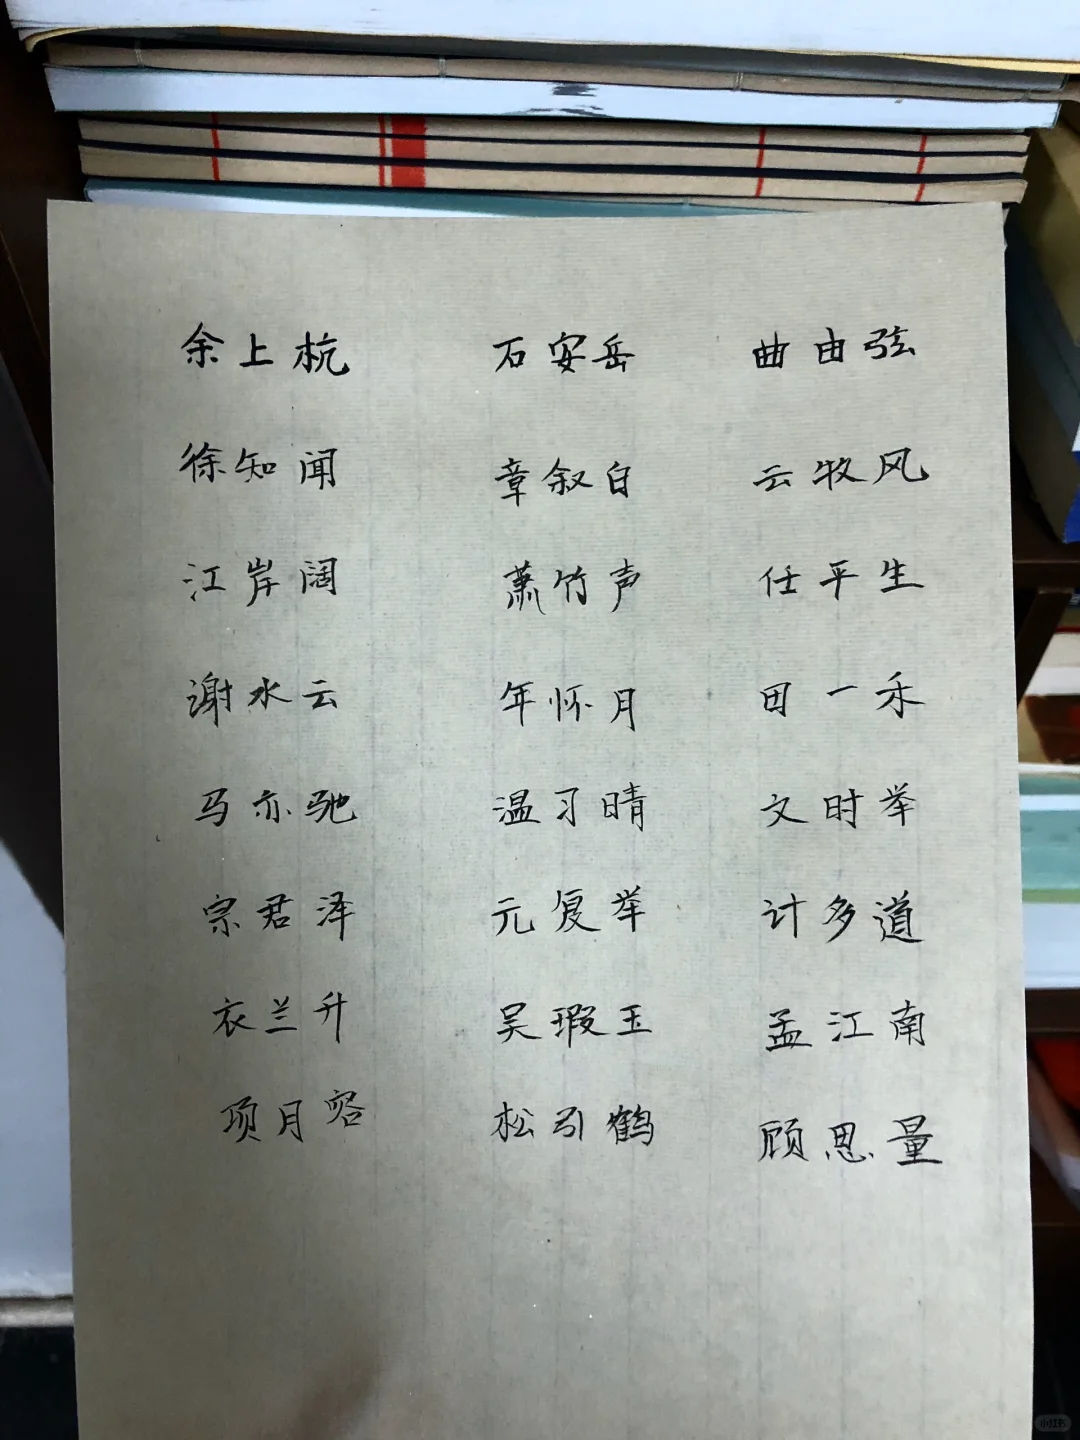 余上杭 石安岳 曲由弦
徐知闻 章叙白 云牧风
江岸阔 萧竹声 任平生
谢水云 年怀月 田一禾
马亦驰 温习晴 文时举
宗君泽 元复举 计多道
衣兰升 吴瑕玉 孟江南
项月容 松引鹤 顾思量